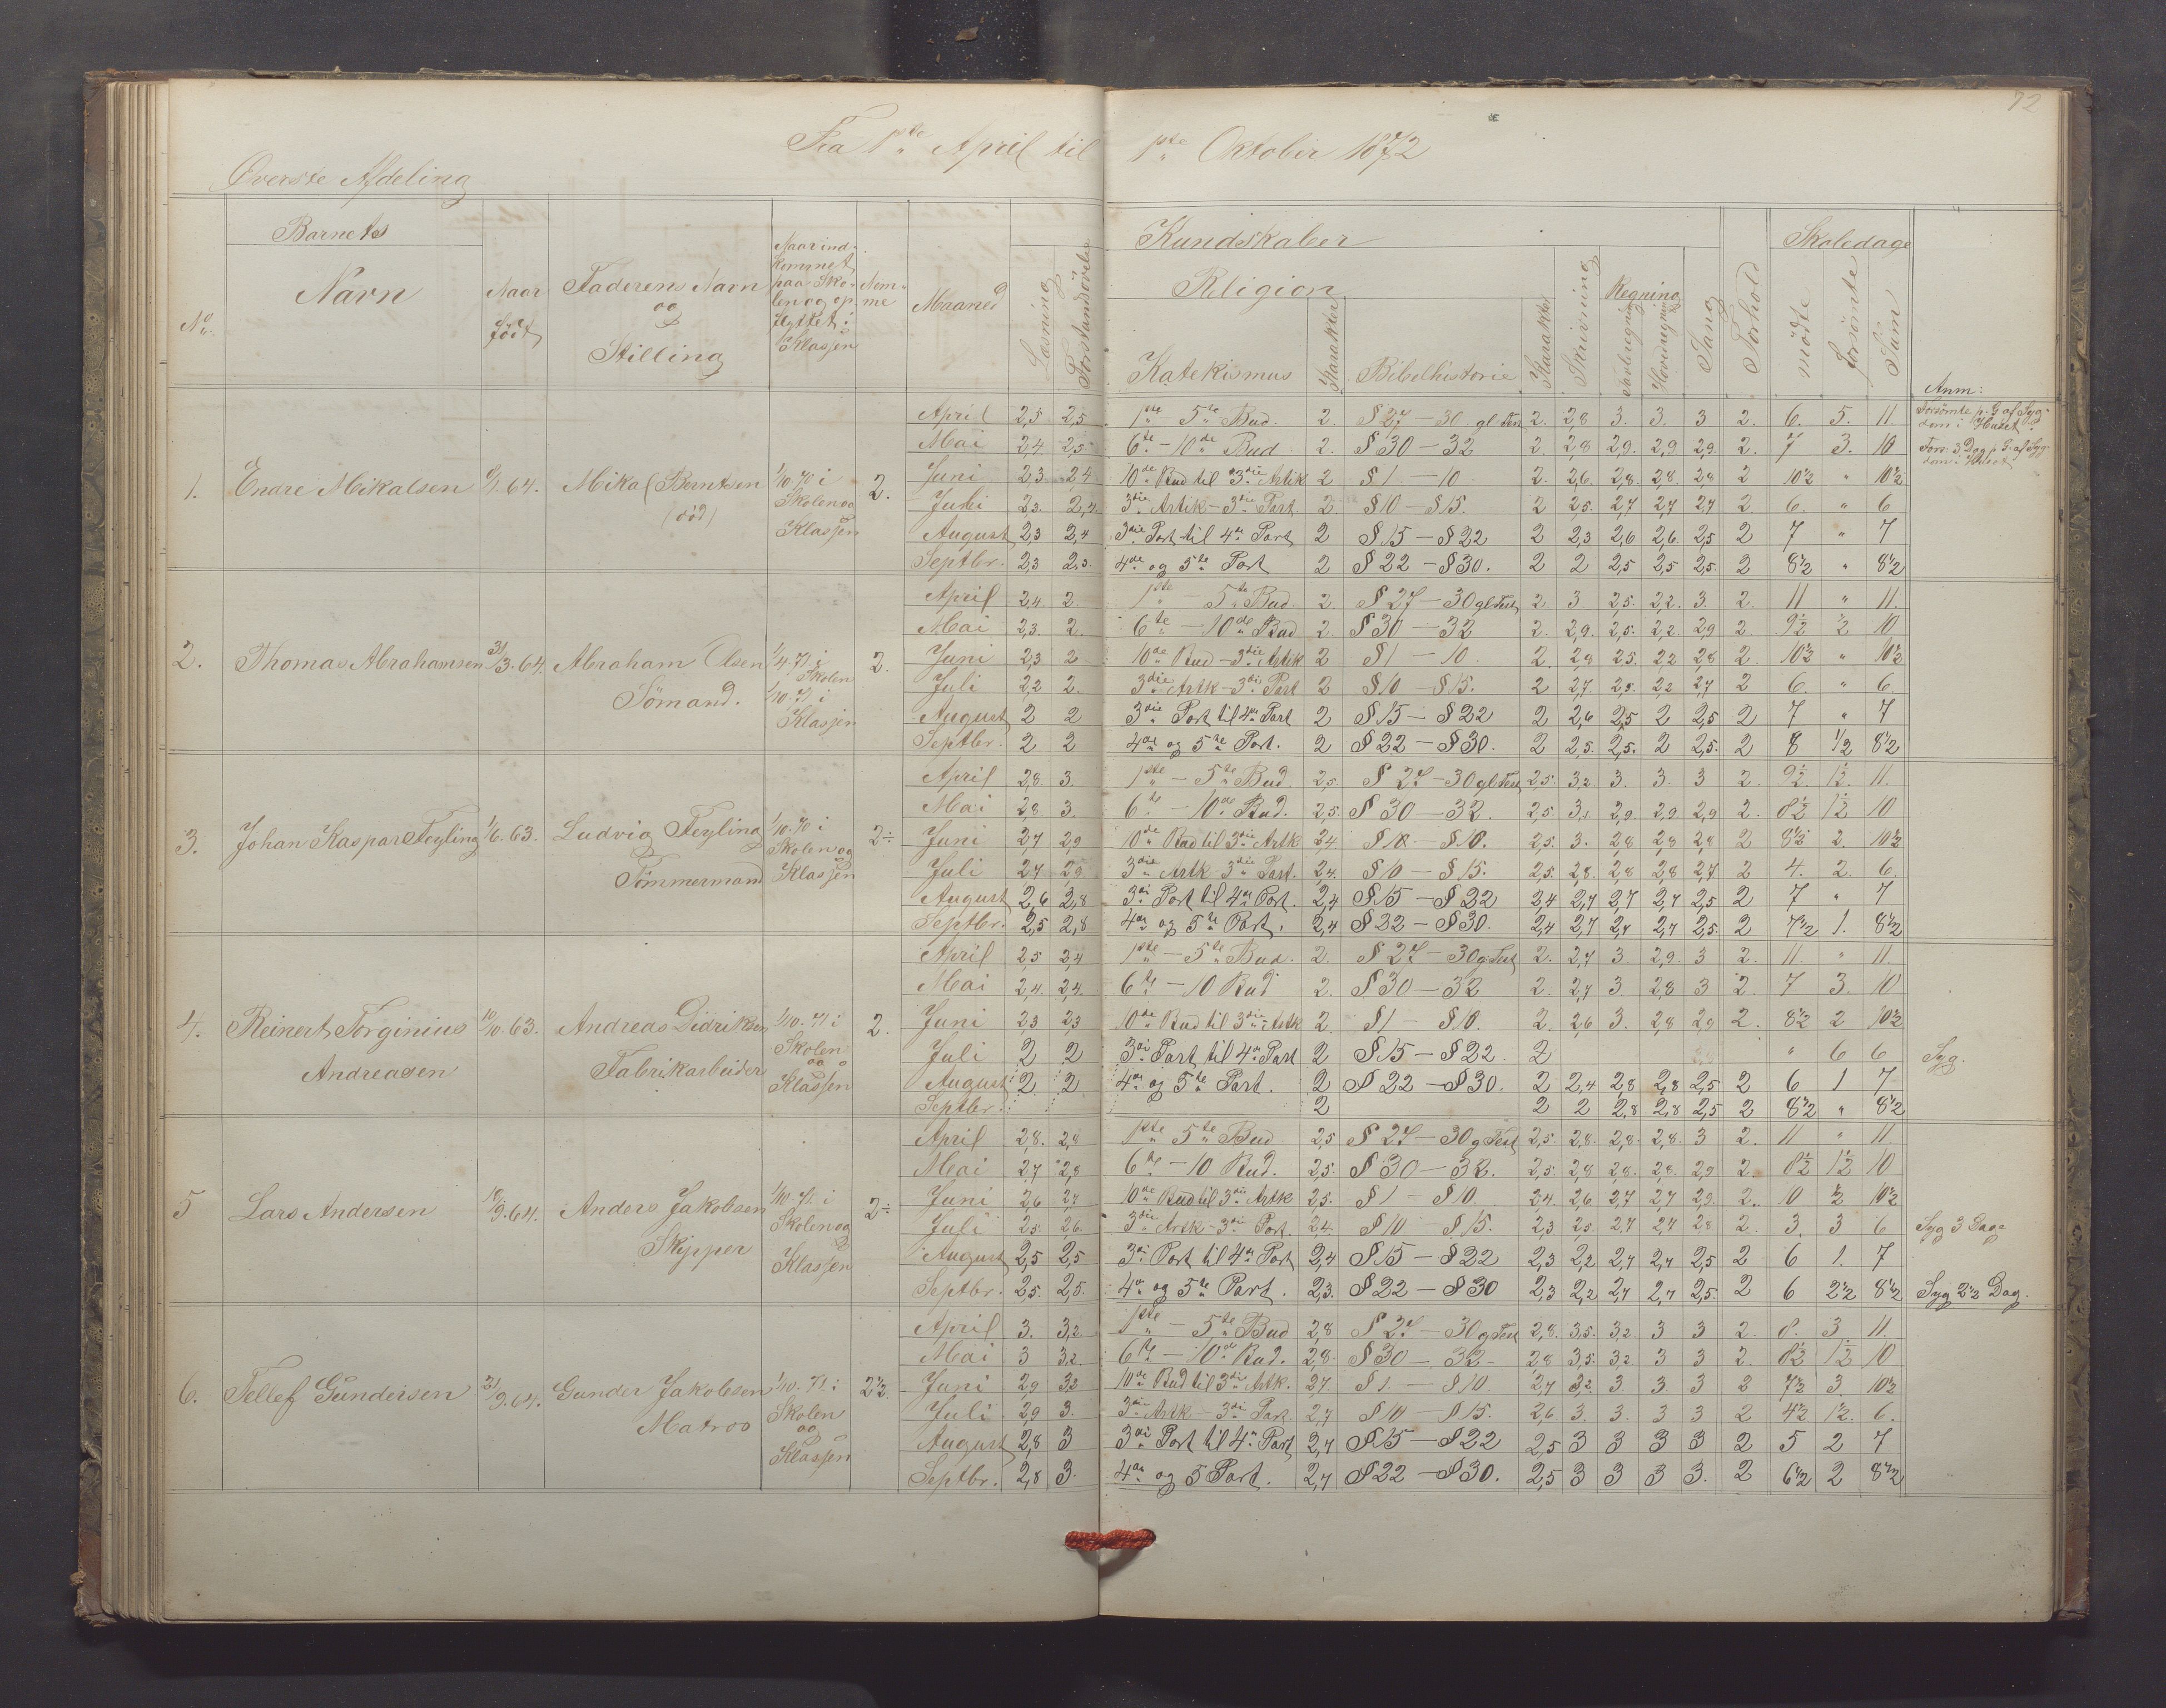 72
Fra 1ste April til 1ste Oktober 1872
Øverste Afdeling
No
Barnets
Navn
Naar
født
Faderens Navn
og
Stilling
Naar ind-
kommet
paa Sko-
len og op-
flyttet i
Klassen
Nem-
me
Maaned
Læsning
Forstandsøvelse
Kundskaber
Religion
Katekismus
Karakter
Bibelhistorie
Karakter
Skrivning
Regning
Tavleregning
Hovedregning
Sang
Forhold
Skoledage
mødte
forsømte
Sum
Anm:
1. Endre Mikalsen 64. Mikal Berntsen (død) 1/10.70 i Skolen og Klassen 2.
April 2,5 2,5 1ste 5te Bud. 2. § 27 – 30 gl Test 2. 2,8 3. 3. 3 2. 6. 5. 11. Forsømte p. G af Syg-
dom i Huset
Mai 2,4 2,5 6te – 10de Bud 2. § 30 – 32 2. 2,8 2,9. 2,9 2,9. 2. 7 3. 10 Fors. 3 Dag p G. af Syg-
dom i Huset
Juni 2,3 2,4 10de Bud til 3die Artik 2 § 1 – 10 2. 2,6. 2,8. 2,8. 2,8 2 10½ " 10½
Juli 2,3. 2,4. 3die Artik – 3die Part. 2. § 10 – § 15. 2 2,5. 2,7 2,7 2,7 2 6. " 6
August 2,3 2,4 3die Part til 4de Part 2 § 15 – § 22 2 2,3 2,6 2,6 2,5 2 7 " 7
Septbr. 2,3 2,3. 4de og 5te Part 2 § 22 – § 30. 2 2 2,5 2,5 2,5. 2 8½ " 8½
2. Thomas Abrahamsen 31/3.64. Abraham Olsen Sømand. 1/4.71 i Skolen 1/10.71 i Klassen 2.
April 2,4 2. 1ste – 5te Bud. 2. § 27 – 30 gl Test 2 3 2,5. 2,2. 3. 2. 11 " 11.
Mai 2,3. 2. 6te – 10de Bud 2. § 30 – 32 2. 2,9. 2,5. 2,2. 2,9 2. 9½ ½ 10
Juni 2,3 2 10de Bud – 3die Artik 2 § 1 – 10. 2. 2,8 2,5. 2,2 2,8 2. 10½ " 10½
Juli 2,2 2. 3die Artk – 3di Part 2 § 10 – § 15. 2 2,7. 2,5. 2,2 2,7 2 6. " 6.
August 2 2 3die Part til 4de Part 2 § 15 – § 22 2 2,6 2,5 2 2,5 2 7 " 7
Septbr. 2 2 4de og 5te Part. 2 § 22 – § 30. 2 2,5. 2,5. 2 2,5. 2 8 1/2 8½
3. Johan Kaspar Feyling 1/6.63. Ludvig Feyling Tømmermand 1/10.70 i Skolen og Klassen 2÷
April 2,8. 3. 1ste – 5te Bud. 2,5. § 27 – 30 gl Test 2,5. 3,2. 3. 3. 3 2. 9½. 1½. 11.
Mai 2,8. 3. 6te – 10de Bud. 2,5. § 30 – 32. 2,5. 3,1. 2,9. 2,9. 2,9 2. 8½ 1½ 10
Juni 2,7 2,9 10de Bud til 3die Artk 2,4. § 1 – § 10. 2,5. 3. 2,8 2,8 2,8 2 8½ 2. 10½
Juli 2,7 2,9 3die Artk 3die Part. 2,4. § 10 – § 15. 2,5. 2,8. 2,8 2,8 2,7 2 4. 2. 6.
August 2,6 2,8 3di Part til 4de Part. 2,4 § 15 – § 22 2,4 2,7 2,7 2,7 2,5 2 7 " 7
Septbr. 2,5 2,8 4de og 5te Part. 2,4 § 22 – § 30. 2,4 2,7 2,7 2,7 2,5. 2 7½ 1. 8½
4. Reinert Torginius Andreasen 10/10.63. Andreas Didriksen Fabrikarbeider 1/10.71 i Skolen og Klassen 2.
April 2,5 2,4 1ste – 5te Bud. 2. § 27 – 30 g. Test 2. 2,7 3. 2,9. 3 2. 11 " 11.
Mai 2,4. 2,4. 6te – 10 Bud 2. § 30 – 32 2. 2,7 3. 2,8 3 2. 7 3. 10
Juni 2,3 2,3 10de Bud til 3die Artk 2. § 1 – § 10. 2. 2,6 3. 2,8 2,9 2. 8½ 2 10½
Juli 2 2 3di Part til 4de Part 2 § 15 – § 22. 2 " 6 6 Syg.
August 2 2 4de og 5te Part. 2 § 22 – § 30. 2 2,4 2,8 2,8 2,5 2 6 1 7
Septbr. 2 2 2 2,8 2,8 2,5 2 8½ " 8½
5 Lars Andersen 18/9.64. Anders Jakobsen Skipper 1/10.71 i Skolen og Klassen 2÷
April 2,8. 2,8 1ste 5te Bud 2,5 § 27 – 30 g Test 2,5. 2,8. 2,8. 2,8. 3 2. 11 " 11.
Mai 2,7 2,8 6te – 10 Bud. 2,5. § 30 – 32. 2,5. 2,8 2,8. 2,8. 2,9 2. 8½ 1½ 10
Juni 2,6 2,7 10de Bud til 3die Artk 2,5. § 1 – § 10 2,4. 2,6 2,7 2,7 2,9. 2. 10 ½ 10½
Juli 2,5. 2,6. 3die Artk – 3die Part. 2,4. § 10 – § 15. 2,3 2,5. 2,7 2,7 2,8 2. 3. 3 6 Syg 3 Dage
August 2,5 2,5 3di Part til 4de Part 2,4 § 15 – § 22 2,3 2,2 2,7 2,7 2,5 2 6 1. 7
Septbr. 2,5. 2,5. 4de og 5te Part. 2,3. § 22 – § 30 2,3 2,2 2,7 2,7 2,5. 2 6 2½ 8½ Syg 2½ Dag.
6. Tellef Gundersen 21/9.64. Gunder Jakobsen Matros 1/10.71 i Skolen og Klassen 2½.
April 3. 3,2. 1ste – 5te Bud 2,8 § 27 – 30 g Test 2,8. 3,5. 3,2. 3 3 2. 8. 3 11.
Mai 3 3,2. 6te – 10de Bud. 2,8. § 30 – 32 – 2,8 3,5. 3,2. 3 3 2. 8½ 1½ 10
Juni 2,9 3,2 10de Bud til 3di Artk. 2,7 § 1. – § 10. 2,7 3,2. 3. 3. 3 2 7½ 3. 10½
Juli 2,9 3. 3die Artk – 3di Part. 2,7 § 10 – § 15. 2,6 3. 3. 3 3 2 4½ 1½. 6.
August 2,8 3 3di Part til 4de Part 2,7 § 15 – § 22 2,5 3 3 3 3 2 5 2 7
Septbr. 2,8 3. 4de og 5 Part. 2,7 § 22 – § 30. 2,5 3 3 3 3. 2 6½ 2 8½